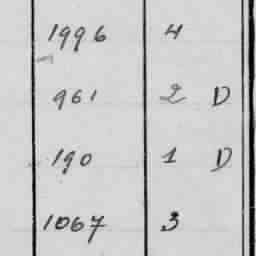 1996 4
961 2 D
190 1 D
1067 3